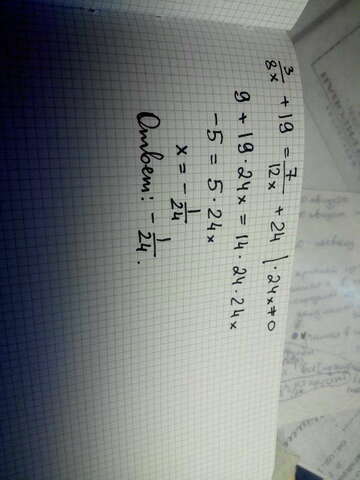 3/8x + 19 = 7/12x + 24 | · 24x ≠ 0
9 + 19 · 24x = 14 · 24 · 24x
-5 = 5 · 24x
x = - 1/24
Ответ: - 1/24.